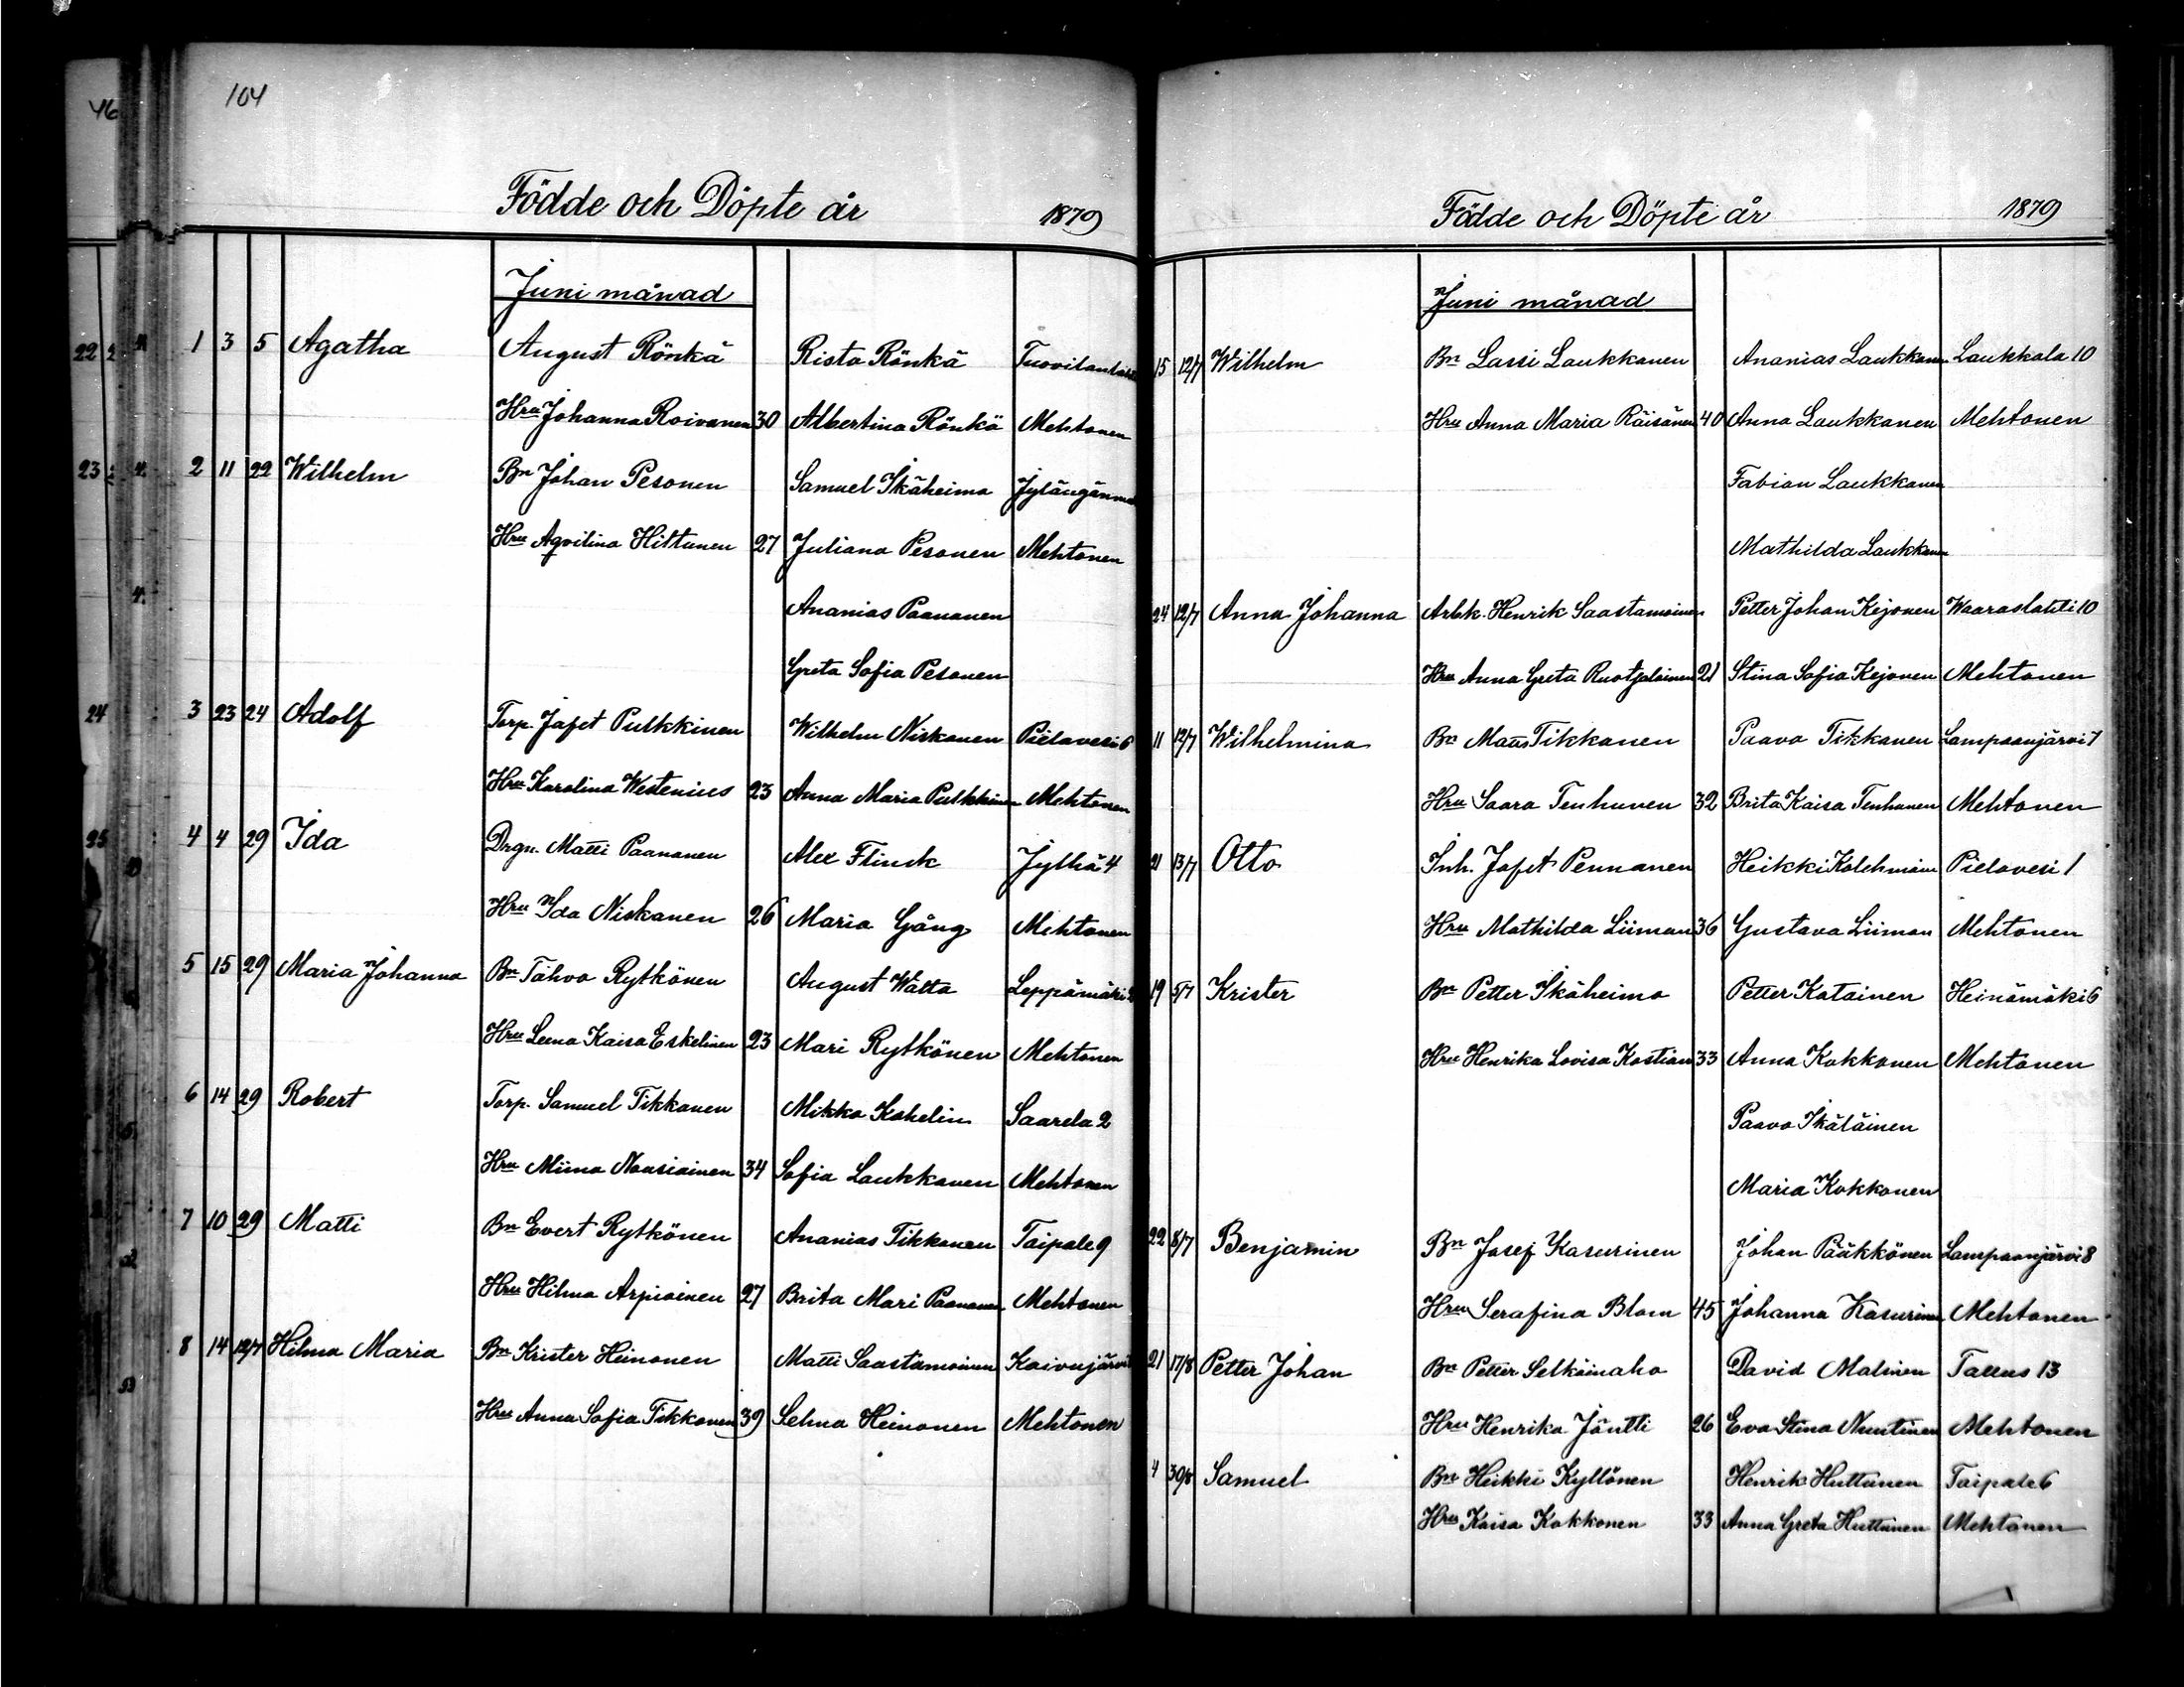 46
104
Födde och Döpte år 1879
Juni månad
22
1 3 5 Agatha August Rönkä Risto Rönkä
Hru Johanna Roivanen 30 Albertina Rönkä Mehtonen
23
2 11 22 Wilhelm Bn Johan Pesonen Samuel Ikäheimo
Hru Aqvilina Hiltunen 27 Juliana Pesonen Mehtonen
Ananias Paananen
Greta Sofia Pesonen
24
3 23 24 Adolf Torp. Jafet Pulkkinen Wilhelm Niskanen Pielavesi 6
Hru Karolina Westenius 23 Anna Maria Pulkkinen Mehtonen
25
4 4 29 Ida Drgn. Matti Paananen Alex Flinck Jylhä 4
Hru Ida Niskanen 26 Maria Gång Mehtonen
5 15 29 Maria Johanna Bn Tahvo Rytkönen August Watta Leppämäki
Hru Leena Kaisa Eskelinen 23 Mari Rytkönen Mehtonen
6 14 29 Robert Torp. Samuel Tikkanen Mikko Kohelin Saarela 2
Hru Miina Nousiainen 34 Sofia Laukkanen Mehtonen
7 10 29 Matti Bn Evert Rytkönen Ananias Tikkanen Taipale 9
Hru Hilma Arpiainen 27 Brita Mari Paananen Mehtonen
8 14 12/7 Hilma Maria Bn Krister Heinonen Matti Saastamoinen Koivujärvi
Hru Anna Sofia Tikkanen 39 Selma Heinonen Mehtonen
Födde och Döpte år 1879
Juni månad
15 12/7 Wilhelm Bn Lassi Laukkanen Ananias Laukkanen Laukkala 10
Hru Anna Maria Räisänen 40 Anna Laukkanen Mehtonen
Fabian Laukkanen
Mathilda Laukkanen
24 12/7 Anna Johanna Arbk. Henrik Saastamoinen Petter Johan Kejonen Waaraslahti 10
Hru Anna Greta Ruotsalainen 21 Stina Sofia Kejonen Mehtonen
11 12/7 Wilhelmina Bn Mauns Tikkanen Paavo Tikkanen Lampaanjärvi 7
Hru Saara Tenhunen 32 Brita Kaisa Tenhunen Mehtonen
21 13/7 Otto Inh. Jafet Pennanen Heikki Kolehmain Pielavesi 1
Hru Mathilda Liiman 36 Gustava Liiman Mehtonen
19 5/7 Krister Bn Petter Ikäheimo Petter Katainen Heinämäki 6
Hru Henrika Lovisa Kostian 33 Anna Kokkonen Mehtonen
Paavo Ikäläinen
Maria Kokkonen
22 8/7 Benjamin Bn Josef Kasurinen Johan Pääkkönen Lampaanjärvi 8
Hru Serafina Blom 45 Johanna Kasurinen Mehtonen
21 17/8 Petter Johan Bn Petter Selkäinaho David Malinen Tallus 13
Hru Henrika Jäntti 26 Eva Stina Nuutinen Mehtonen
4 30/8 Samuel Bn Heikki Kyllönen Henrik Huttunen Taipale 6
Hru Kaisa Kokkonen 33 Anna Greta Huttunen Mehtonen